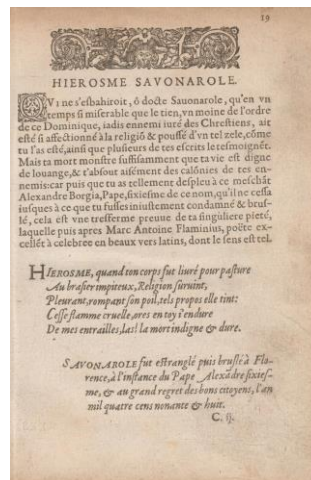 19
HIEROSME SAVONAROLE.
QVi ne s'esbahiroit, ô docte Sauonarole, qu'en vn
temps si miserable que le tien, vn moine de l'ordre
de ce Dominique, iadis ennemi iuré des Chrestiens, ait
esté si affectiõné à la religiõ & poussé d'vn tel zele, cõme
tu l'as esté, ainsi que plusieurs de tes escrits le tesmoignẽt.
Mais ta mort monstre suffisamment que ta vie est digne
de louange, & t'absout aisément des calõnies de tes en-
nemis: car puis que tu as tellement despleu à ce meschãt
Alexandre Borgia, Pape, sixiesme de ce nom, qu'il ne cessa
iusques à ce que tu fusses iniustement condamné & brus-
lé, cela est vne tresferme preuue de ta singuliere pieté,
laquelle puis apres Marc Antoine Flaminius, poëte ex-
cellẽt à celebree en beaux vers latins, dont le sens est tel.
HIEROSME, quand ton corps fut liuré pour pasture
Au brasier impiteux, Religion suruint,
Pleurant, rompant son poil, tels propos elle tint:
Cesse flamme cruelle, ores en toy i'endure
De mes entrailles, las! la mort indigne & dure.
SAVONAROLE fut estranglé puis bruslé à Flo-
rence, à l'instance du Pape Alexãdre sixies-
me, & au grand regret des bons citoyens, l'an
mil quatre cens nonante & huit.
C. ij.